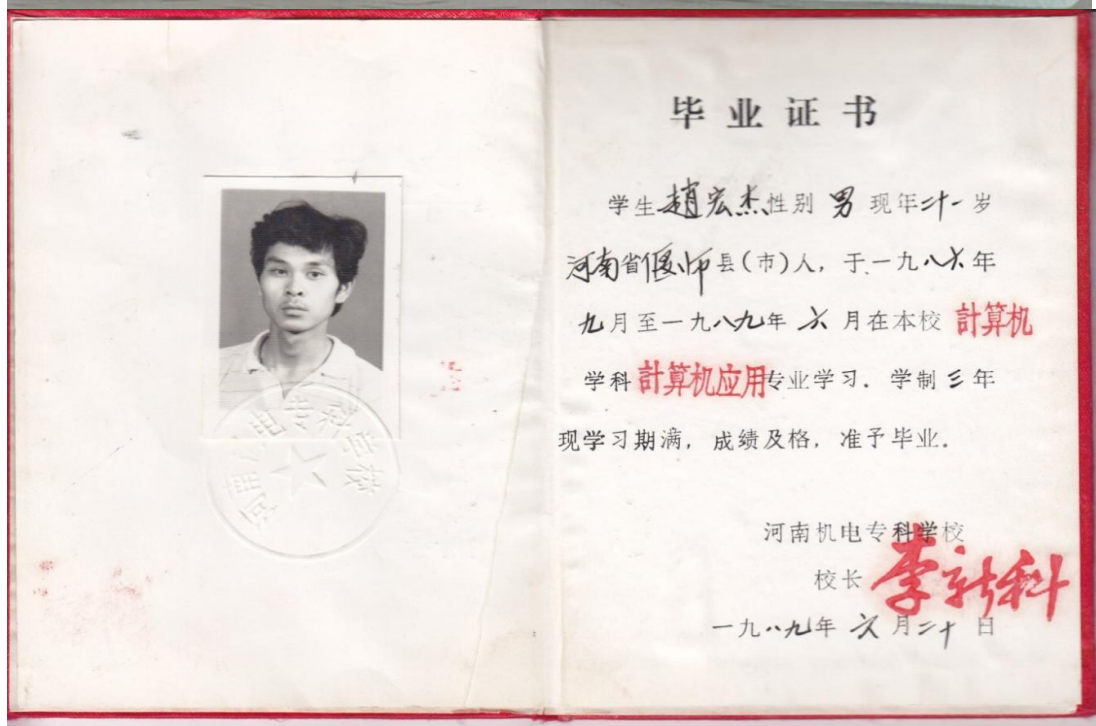 毕业证书
学生赵宏杰性别 男 现年二十一岁
河南省偃师县(市)人，于一九八六年
九月至一九八九年 六 月在本校 計算机
学科 計算机应用专业学习．学制三年
现学习期满，成绩及格，准予毕业．
河南机电专科学校
校长 李新科
一九八九年 六月二十日